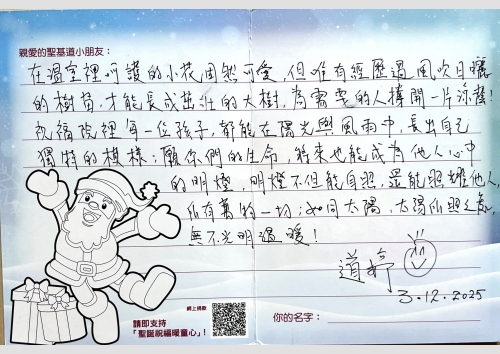 親愛的聖基道小朋友：
在溫室裡呵護的小花固然可愛，但唯有經歷過風吹日曬
的樹苗，才能長成茁壯的大樹，為需要的人撐開一片涼蔭！
祝福院裡每一位孩子，都能在陽光與風雨中，長出自己
獨特的模樣，願你們的生命，將來也能成為他人心中
的明燈，明燈不但能自照，還能照耀他人
所有著的一切；如同太陽，太陽所照之處，
無不光明溫暖！
道婷
3.12.2025
你的名字：
網上捐款
請即支持
「聖誕祝福暖童心」！